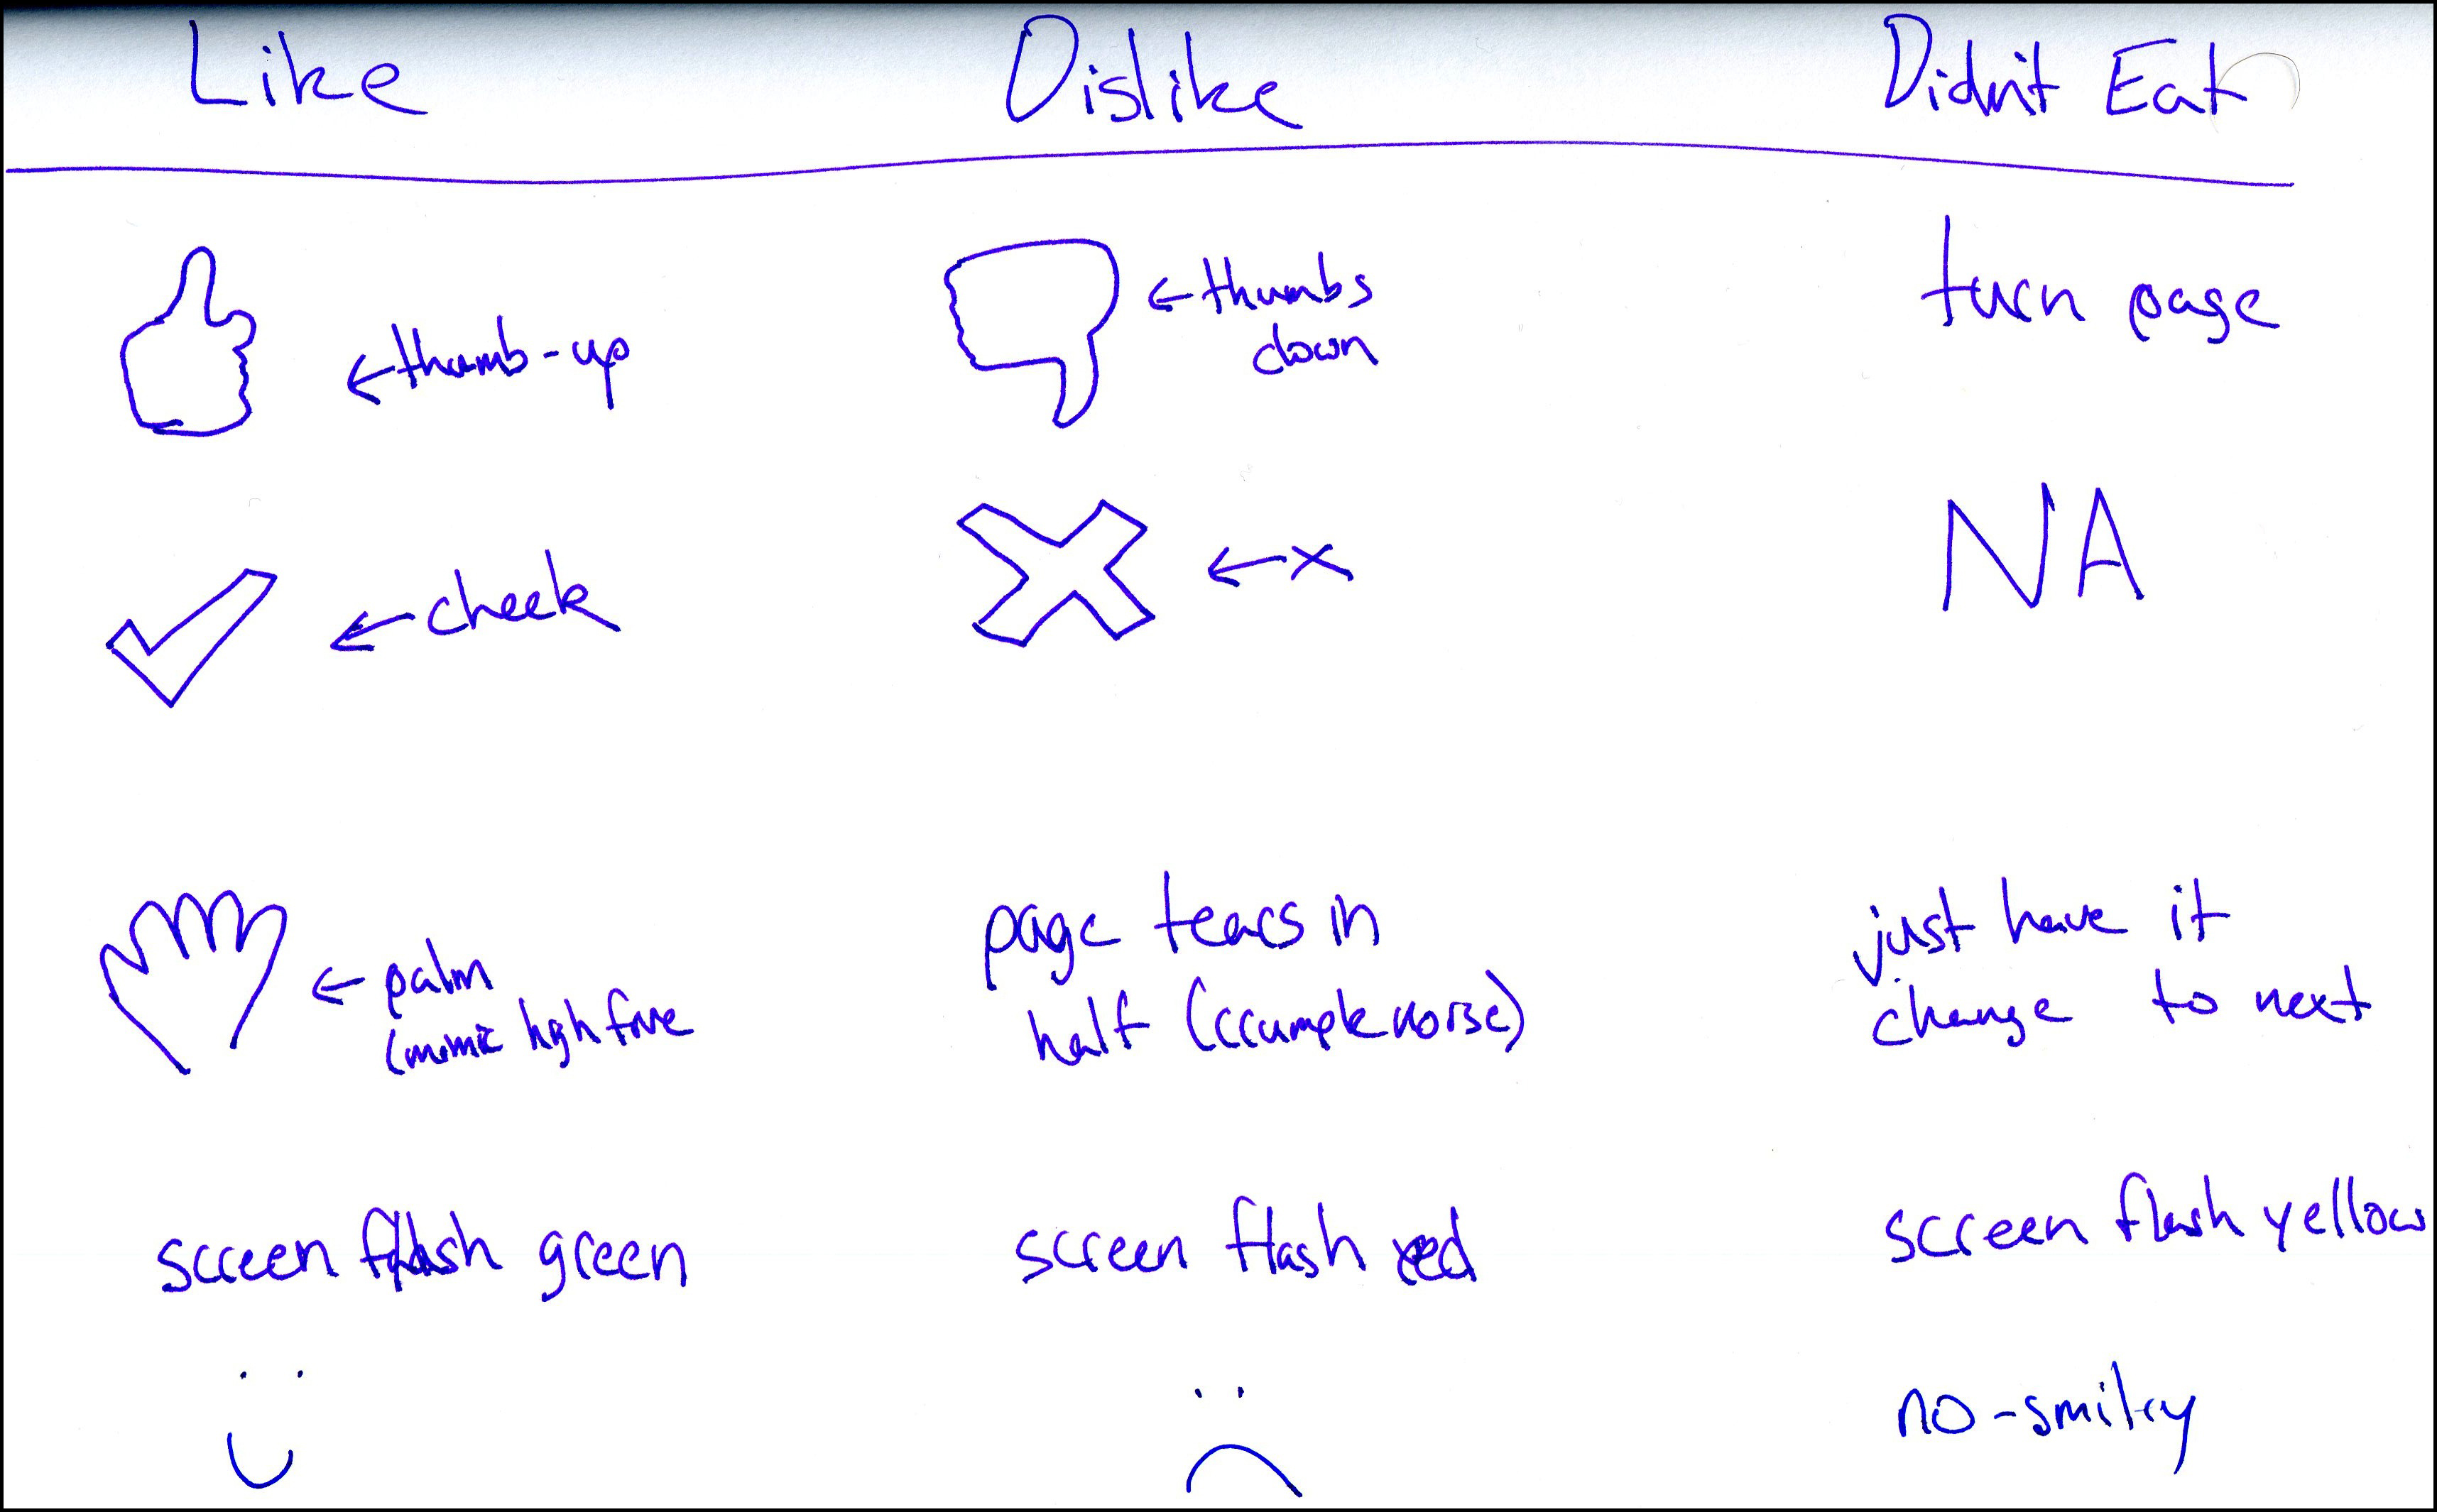 Like Dislike Didn't Eat
←thumb-up ←thumbs turn page
down
←check ←x NA
←palm page tears in just have it
(mimic high five half (crumple noise) change to next
screen flash green screen flash red screen flash yellow
no-smiley